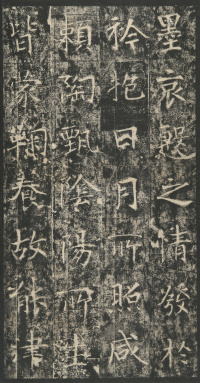 墨哀慇之情發於
衿抱日月所昭咸
賴陶甄陰陽所生
皆蒙鞠養故能律